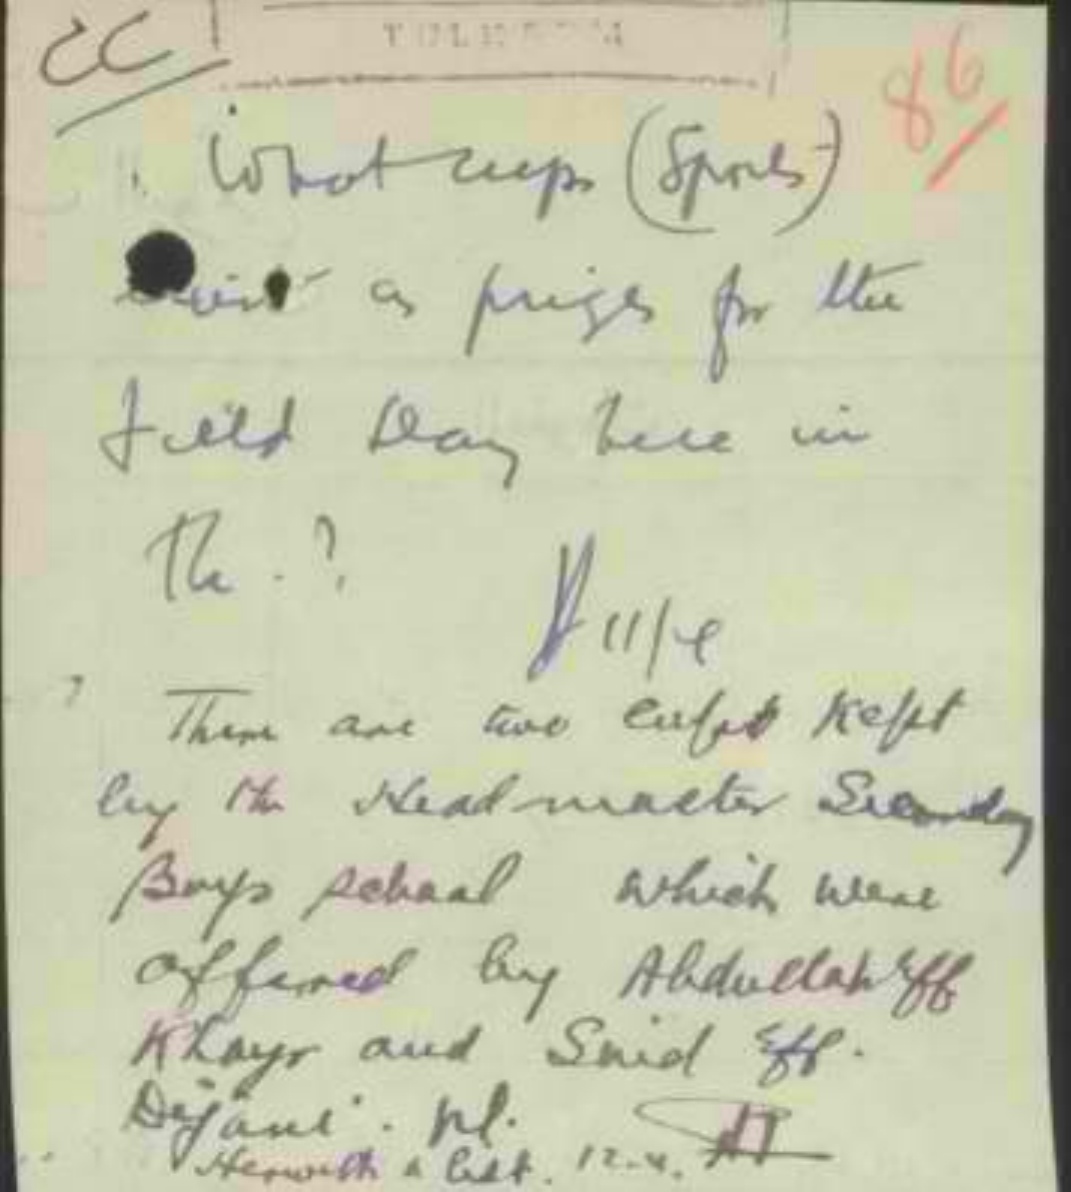 CC
TULKARM
86
What cups (Sports)
exist as prizes for the
Field Day here in
Tk. ?
11/4
There are two cups kept
by the Headmaster Secondary
Boys school which were
offered by Abdullah Eff
Khayr and Said Eff.
Dajani. pl.
Herewith a list. 12.4.